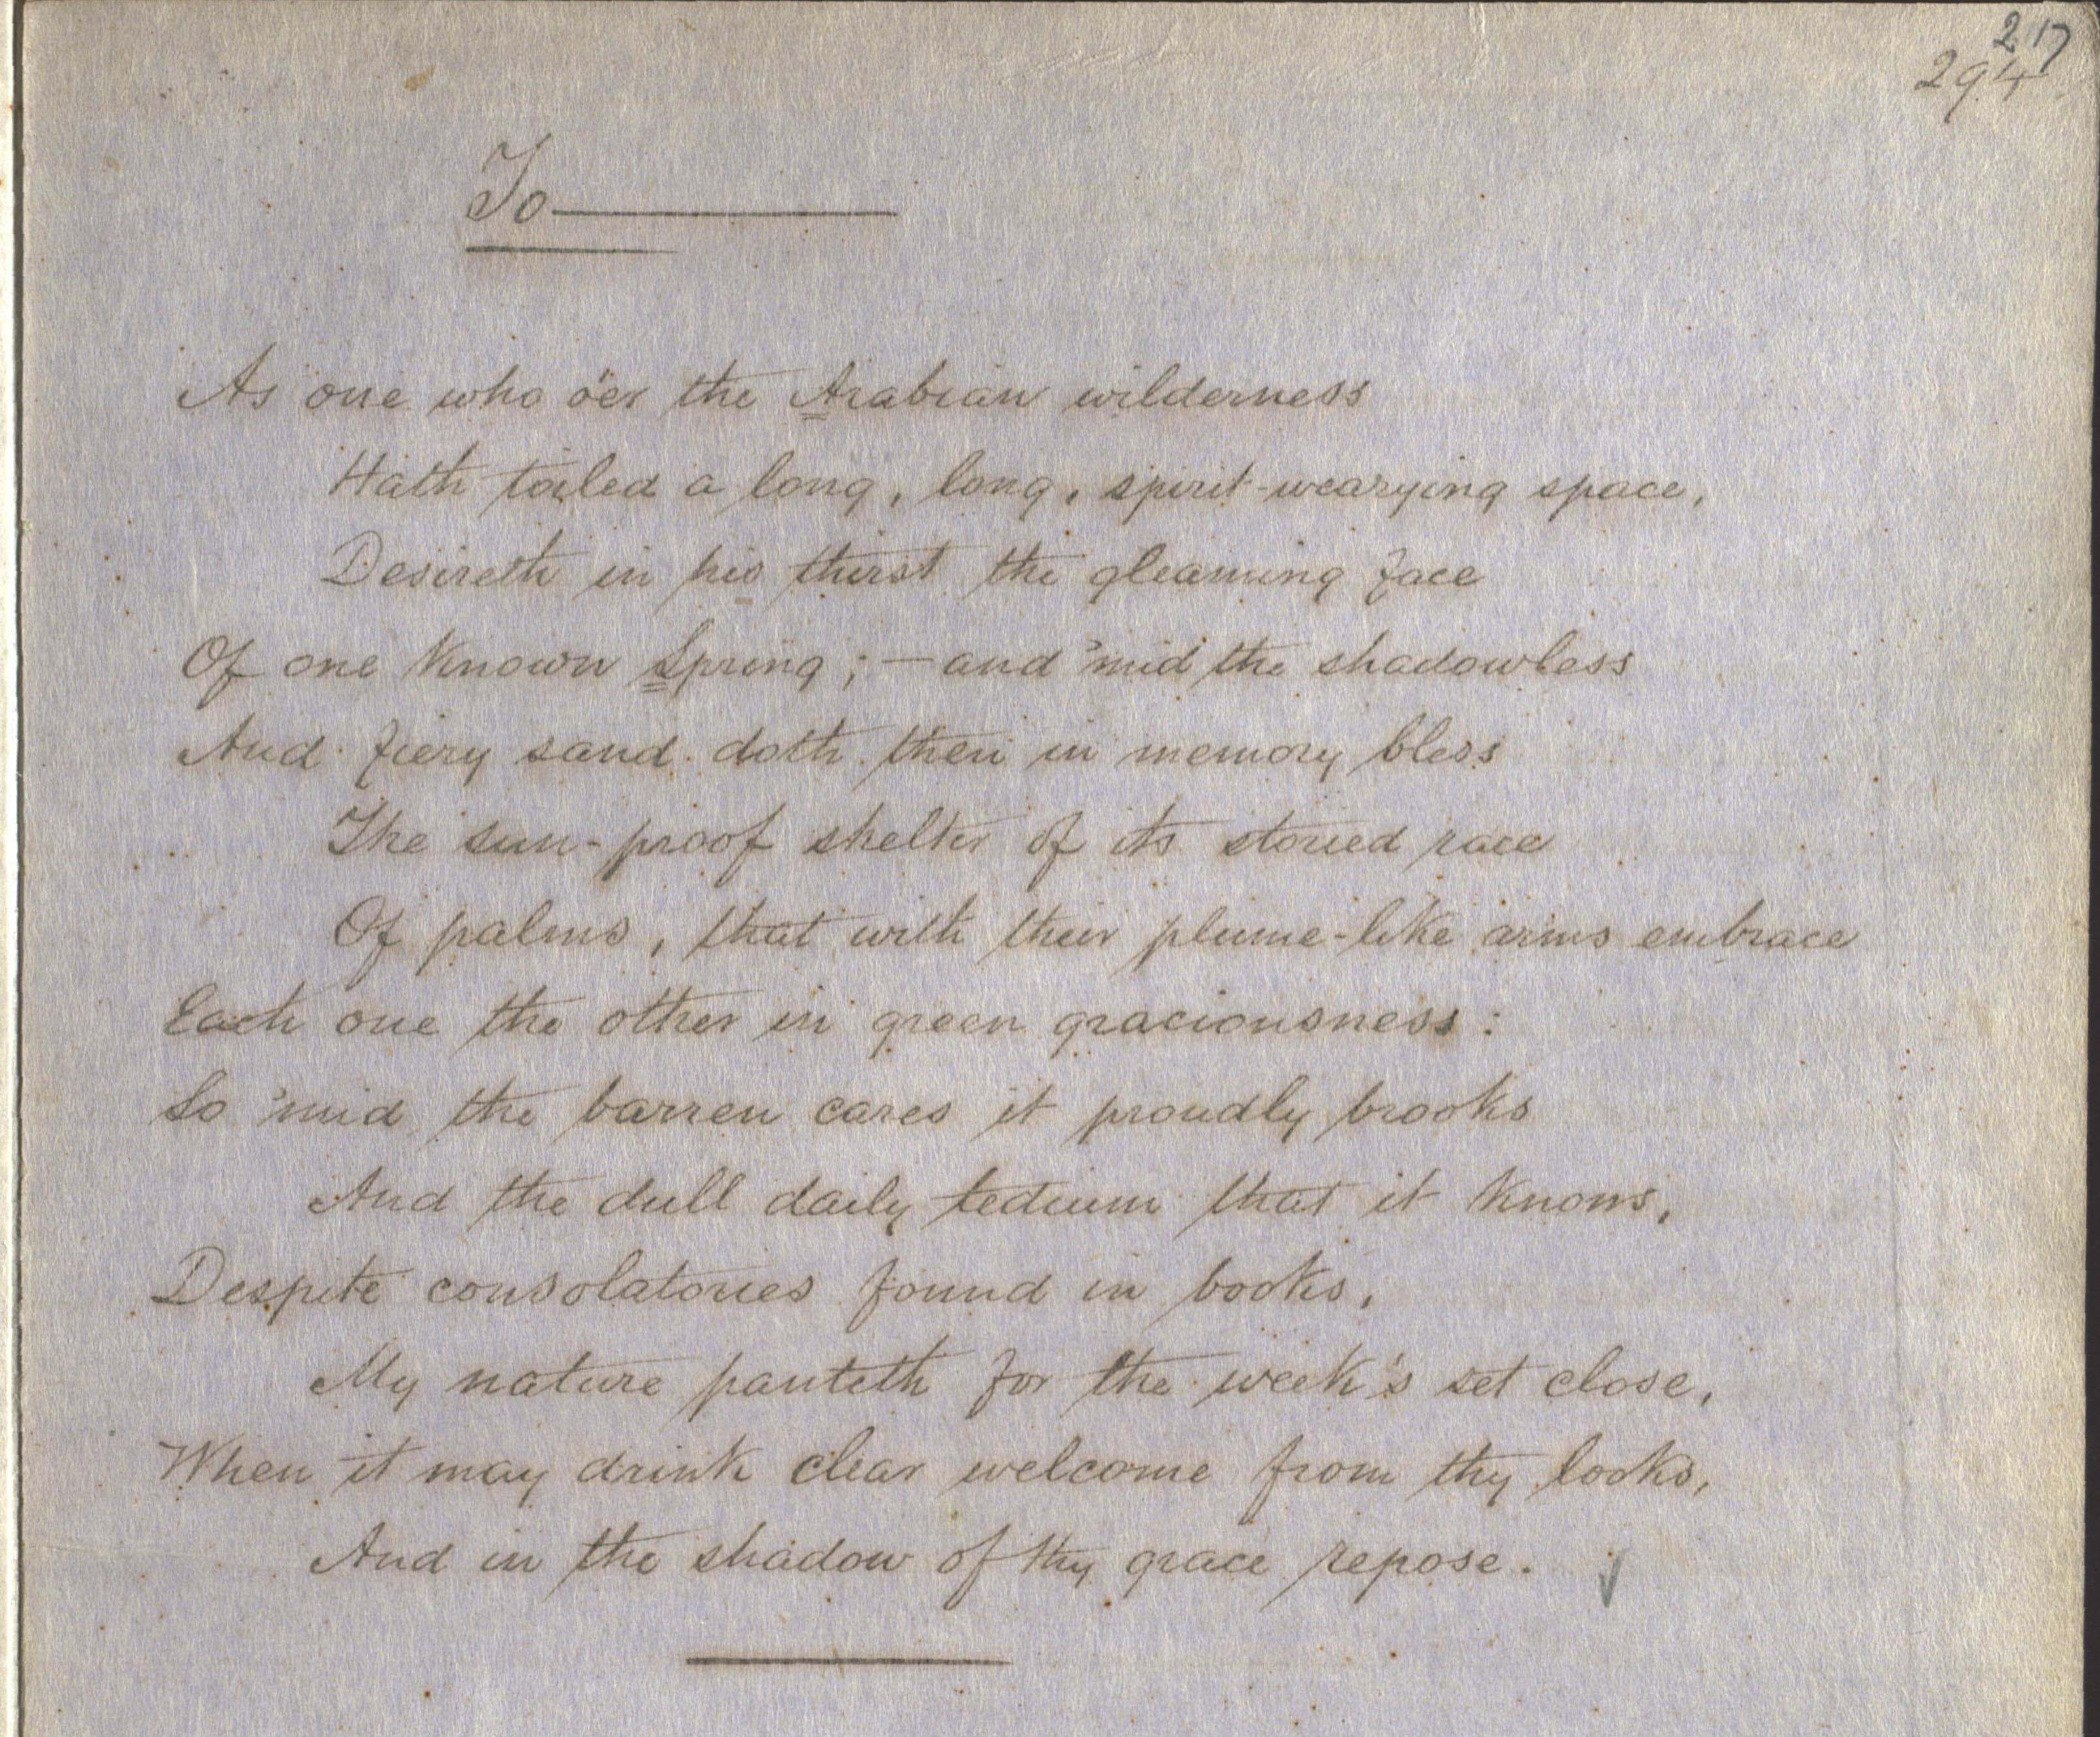 217
294
To————
As one who o'er the Arabian wilderness
Hath toiled a long, long, spirit-wearying space,
Desireth in his thirst the gleaming face
Of one known Spring; — and 'mid the shadowless
And fiery sand doth then in memory bless
The sun-proof shelter of its storied race
Of palms, that with their plume-like arms embrace
Each one the other in green graciousness:
So 'mid the barren cares it proudly brooks
And the dull daily tedium that it knows,
Despite consolatories found in books,
My nature panteth for the week's set close,
When it may drink clear welcome from thy looks,
And in the shadow of thy grace repose.